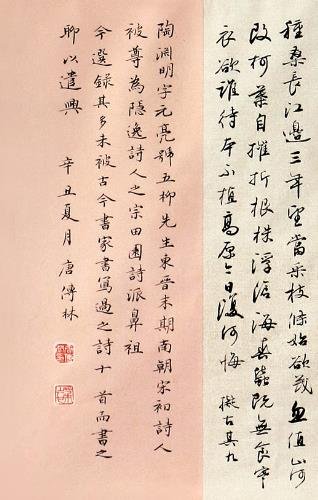 種桑長江邊三年望當采枝條始欲茂忽值山河
改柯葉自摧折根株浮滄海春蠶既無食寒
衣欲誰待本不植高原今日復何悔 擬古其九
陶淵明字元亮號五柳先生東晉末期南朝宋初詩人
被尊為隱逸詩人之宗田園詩派鼻祖
今選錄其多未被古今書家書寫過之詩十首而書之
聊以遣興 辛丑夏月 唐傳林